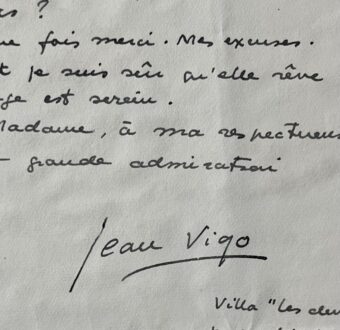 ?
fois merci. Mes excuses.
je suis sûr qu'elle rêve
est serein.
Madame, à ma respectueus
grande admiration
Jean Vigo
Villa "Les